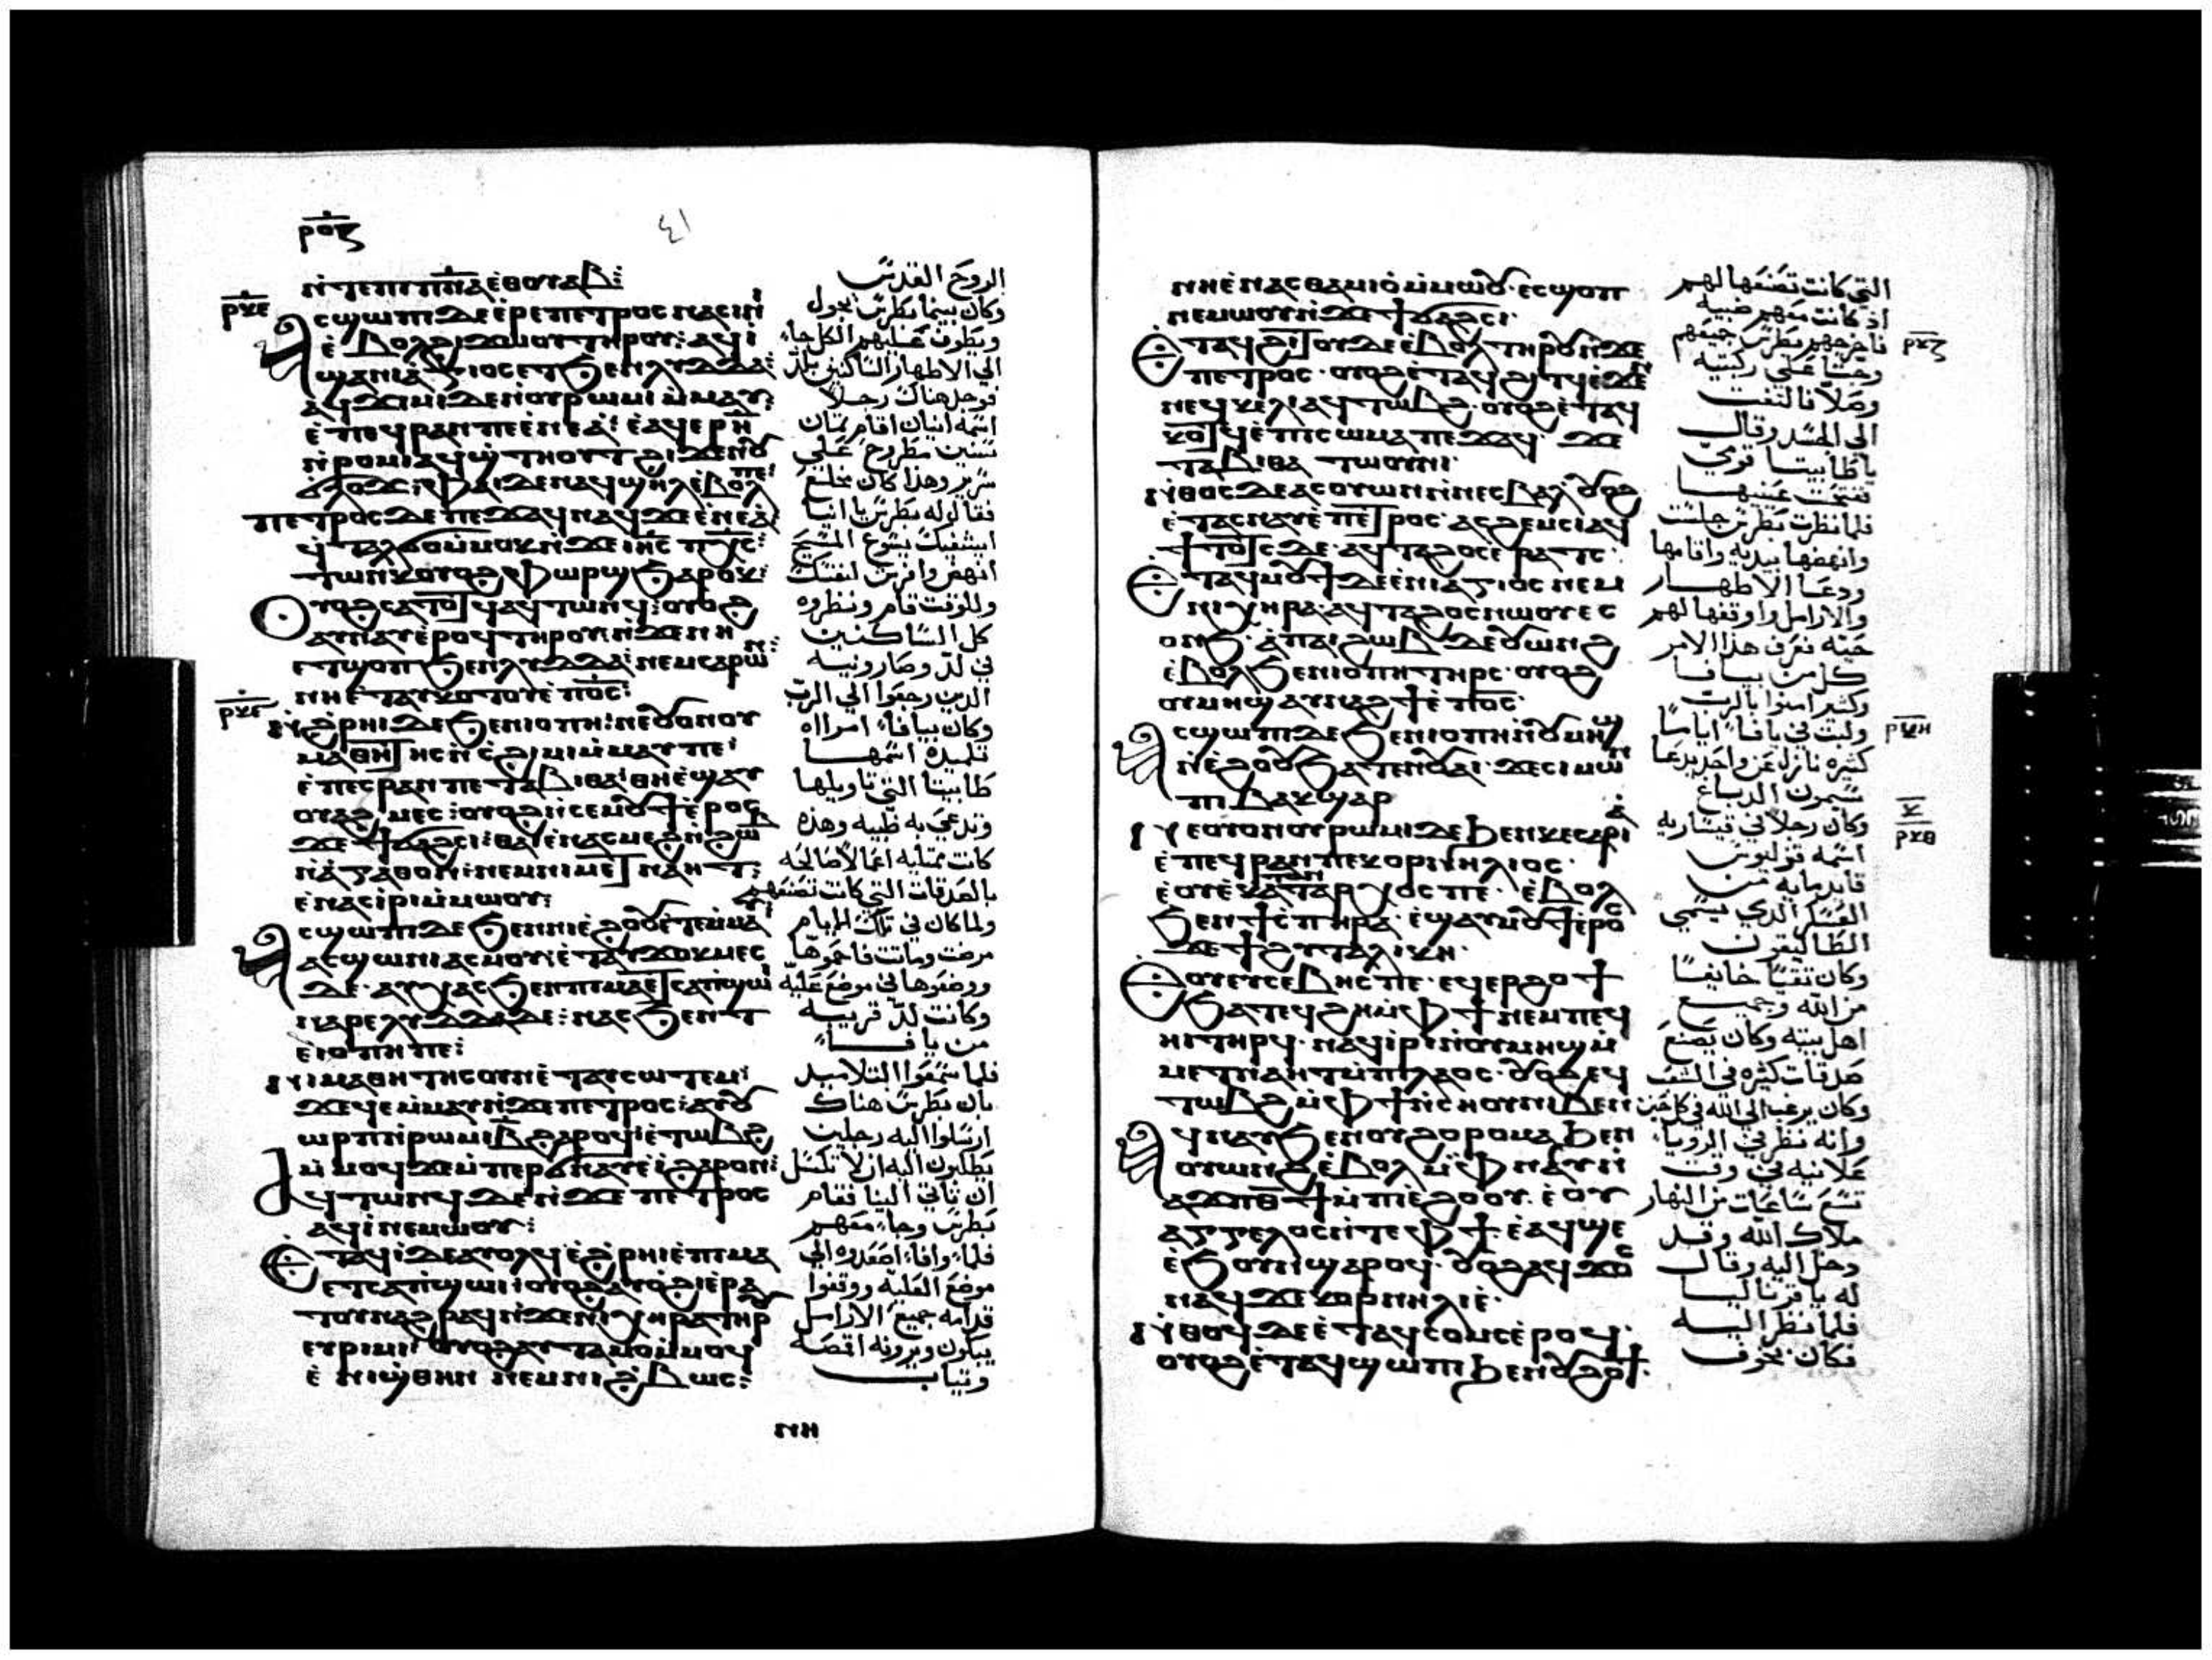 ⲣⲟⲍ
٤١
ⲛ̇ⲧⲉⲡⲓⲡⲛ̅ⲁ ⲉ̇ⲑⲟⲩⲁⲃ:
ⲣⲕⲉ
ⲁⲥϣⲱⲡⲓ ⲇⲉ ⲉ̇ⲣⲉ ⲡⲉⲧⲣⲟⲥ ⲛⲁⲥⲓⲛⲓ
ⲉ̇ⲃⲟⲗ ϩⲓϫⲱⲟⲩ ⲧⲏⲣⲟⲩ: ⲁϥⲓ̇
ϣⲁ ⲛⲓⲁⲅⲓⲟⲥ ⲉⲧϧⲉⲛ ⲗⲩⲇⲇⲁ:
ⲁϥϫⲓⲙⲓ ⲇⲉ ⲛ̇ⲟⲩⲣⲱⲙⲓ ⲙ̇ⲙⲁⲩ:
ⲉ̇ⲡⲉϥⲣⲁⲛ ⲡⲉ ⲉ̇ⲛⲉⲁ: ⲉ̇ⲁϥⲉⲣ ⲏ̅
ⲛ̇ⲣⲟⲙⲡⲓ ⲁϥϣ̇ⲧⲏⲟⲩⲧ ϩⲓϫⲉⲛ ⲟⲩ
ϭⲗⲟϫ: ⲫⲁⲓ ⲇⲉ ⲛⲁϥϣⲏⲗ ⲉ̇ⲃⲟⲗ ⲡⲉ:
ⲡⲉⲧⲣⲟⲥ ⲇⲉ ⲡⲉϫⲁϥ ⲛⲁϥ ϫⲉ ⲉ̇ⲛⲉⲁ:
ϥ̇ⲧⲁⲗϭⲟ ⲙ̇ⲙⲟⲕ ⲛ̇ϫⲉ ⲓⲏ̅ⲥ ⲡⲭ̅ⲥ:
ⲧⲱⲛⲕ ⲟⲩⲟϩ ⲫⲱⲣϣ ϧⲁⲣⲟⲕ:
ⲟⲩⲟϩ ⲥⲁⲧⲟⲧϥ ⲁϥⲧⲱⲛϥ: ⲟⲩⲟϩ
ⲁⲩⲛⲁⲩ ⲉ̇ⲣⲟϥ ⲧⲏⲣⲟⲩ ⲛ̇ϫⲉ ⲛⲏ
ⲉⲧϣⲟⲡ ϧⲉⲛ ⲗⲩⲇⲇⲁ: ⲛⲉⲙ ⲥⲁⲣⲱⲛ:
ⲛⲏ ⲉ̇ⲧⲁⲩⲕⲟⲧⲟⲩ ⲉ̇ⲡⲟ̅ⲥ:
ⲣⲕⲋ
ϩ̇ⲣⲏⲓ ⲇⲉ ϧⲉⲛ ⲓⲟⲡⲡⲏ: ⲛⲉ ⲟⲩⲟⲛ ⲟⲩ
ⲙⲁⲑⲏⲧⲏⲥ ⲛ̇ⲥ̇ϩⲓⲙⲓ ⲙ̇ⲙⲁⲩ ⲡⲉ:
ⲉ̇ⲡⲉⲥⲣⲁⲛ ⲡⲉ ⲧⲁⲃⲓⲑⲁ: ⲑⲏ ⲉ̇ϣⲁⲩ
ⲟⲩⲁϩⲙⲉⲥ: ⲟⲩⲟϩ ⲛ̇ⲥⲉⲙⲟⲩϯ ⲉ̇ⲣⲟⲥ
ϫⲉ ϯϭⲁϩⲥⲓ: ⲑⲁⲓ ⲉ̇ⲛⲁⲥⲙⲉϩ ⲛ̇ϩⲱⲃ
ⲛ̇ⲁⲅⲁⲑⲟⲛ: ⲛⲉⲙ ⲛⲓⲙⲉⲧⲛⲁⲏⲧ:
ⲉ̇ⲛⲁⲥⲓ̇ⲣⲓ ⲙ̇ⲙⲱⲟⲩ:
ⲁⲥϣⲱⲡⲓ ⲇⲉ ϧⲉⲛ ⲛⲓⲉ̇ϩⲟⲟⲩ ⲉ̇ⲧⲉⲙ̇ⲙⲁⲩ
ⲁⲥϣⲱⲛⲓ ⲁⲥⲙⲟⲩ: ⲉ̇ⲧⲁⲩϫⲟⲕⲙⲉⲥ
ⲇⲉ ⲁⲩⲭⲁⲥ ϧⲉⲛ ⲡⲓⲙⲁ ⲉⲧⲥⲁⲡ̇ϣⲱⲓ
ⲛⲁⲣⲉ ⲗⲩⲇⲇⲁ ⲇⲉ: ⲛⲁⲥϧⲉⲛⲧ
ⲉ̇ⲓⲟⲡⲡⲏ ⲡⲉ:
ⲛⲓⲙⲁⲑⲏⲧⲏⲥ ⲟⲩⲛ ⲉ̇ⲧⲁⲩⲥⲱⲧⲉⲙ:
ϫⲉ ϥⲉⲙ̇ⲙⲁⲩ ⲛ̇ϫⲉ ⲡⲉⲧⲣⲟⲥ: ⲁⲩⲟⲩ
ⲱⲣⲡ ⲛ̇ⲣⲱⲙⲓ ⲃ̅ ϩⲁⲣⲟϥ: ⲉ̇ⲧⲱⲃϩ
ⲙ̇ⲙⲟϥ ϫⲉ ⲙ̇ⲡⲉⲣϭⲛⲁⲩ ⲉ̇ⲓ̇ ϩⲁⲣⲟⲛ:
ⲁϥⲧⲱⲛϥ ⲇⲉ ⲛ̇ϫⲉ ⲡⲉⲧⲣⲟⲥ
ⲁϥⲓ̇ ⲛⲉⲙⲱⲟⲩ:
ⲉⲧⲁϥⲓ̇ ⲇⲉ ⲁⲩⲟⲗϥ ⲉ̇ϩ̇ⲣⲏⲓ ⲉ̇ⲡⲓⲙⲁ
ⲉⲧⲥⲁⲡ̇ϣⲱⲓ: ⲟⲩⲟϩ ⲁⲩⲟ̇ϩⲓ ⲉ̇ⲣⲁ
ⲧⲟⲩ ⲛⲁϩⲣⲁϥ ⲛ̇ϫⲉ ⲛⲓⲭⲏⲣⲁ ⲧⲏⲣ
ⲉⲩⲣⲓⲙⲓ: ⲟⲩⲟϩ ⲁⲩⲧⲁⲙⲟ ⲙ̇ⲙⲟϥ
ⲉ̇ⲛⲓϣ̇ⲑⲏⲛ ⲛⲉⲙ ⲛⲓϩ̇ⲃⲱⲥ:
الروح القدس
وكان بينما بطرس يجول
ويطوف عليهم الكل جاء
الي الاطهار الساكنين بلدّ
فوجد هناك رجلاً
اسمه انياس اقام ثمان
سنين مطروح علي
سرير وهذا كان مخلع
فقال له بطرس يا انيا
ابيشفيك يسوع المسيح
انهض وافرش لنفسك
وللوقت قام ونظروه
كل الساكنين
في لدّ وصارونيه
الذين رجعوا الي الرب
وكان بيافا امرااه
تلميذه اسمها
طابيتا التي تاويلها
وتدعي به ظبيه وهذه
كانت ممتليه اعمالاً صالحه
بالصدقات التي كانت تصنعهم
ولما كان في تلك الايام
مرضت وماتت فاحموها
ووضعوها في موضع عليّه
وكانت لدّ قريبه
من يافا
فلما سمعوا التلاميد
بان بطرس هناك
ارسلوا اليه رجلين
يطلبون اليه ان لا تكسل
ان تاتي الينا فقام
بطرس وجاء معهم
فلما وافا اصعدوه الي
موضع العليّه ووقفوا
قدامه جميع الارامل
يبكون ويرونه اقمصه
وتياب
ⲛⲏ
ⲛⲏ ⲉ̇ⲛⲁⲥⲑⲁⲙⲓⲟ̇ ⲙ̇ⲙⲱⲟⲩ ⲉⲥϣⲟⲡ
ⲛⲉⲙⲱⲟⲩ ⲛ̇ϫⲉ ϯϭⲁϩⲥⲓ·
ⲉⲧⲁϥϩⲓⲧⲟⲩ ⲇⲉ ⲉ̇ⲃⲟⲗ ⲧⲏⲣⲟⲩ ⲛ̇ϫⲉ
ⲡⲉⲧⲣⲟⲥ· ⲟⲩⲟϩ ⲉ̇ⲧⲁϥϩⲓⲧϥ ⲉ̇ϫⲉⲛ
ⲛⲉϥⲕⲉⲗⲓ ⲁϥⲧⲱⲃϩ· ⲟⲩⲟϩ ⲉ̇ⲧⲁϥ
ⲕⲟⲧϥ ⲉ̇ⲡⲓⲥⲱⲙⲁ ⲡⲉϫⲁϥ· ϫⲉ
ⲧⲁⲃⲓⲑⲁ ⲧⲱⲟⲩⲛⲓ·
ⲛ̇ⲑⲟⲥ ⲇⲉ ⲁⲥⲟⲩⲱⲛ ⲛ̇ⲛⲉⲥⲃⲁⲗ ⲟⲩⲟϩ
ⲉ̇ⲧⲁⲥⲛⲁⲩ ⲉ̇ⲡⲉⲧⲣⲟⲥ· ⲁⲥϩⲉⲙⲥⲓ ⲁϥ
ϯⲧⲟⲧⲥ ⲇⲉ ⲁϥⲧⲁϩⲟⲥ ⲉⲣⲁⲧⲥ·
ⲉⲧⲁϥⲙⲟⲩϯ ⲇⲉ ⲉ̇ⲛⲓⲁⲅⲓⲟⲥ ⲛⲉⲙ
ⲛⲓⲭⲏⲣⲁ· ⲁϥⲧⲁϩⲟⲥ ⲛⲱⲟⲩ ⲉⲥ
ⲟⲛϧ· ⲁ̇ ⲡⲁⲓϩⲱⲃ ⲇⲉ ⲟⲩⲱⲛϩ
ⲉ̇ⲃⲟⲗ ϧⲉⲛ ⲓⲟⲡⲡⲏ ⲧⲏⲣⲥ· ⲟⲩⲟϩ
ⲟⲩⲙⲏϣ ⲁⲩⲛⲁϩϯ ⲉ̇ⲡⲟ̅ⲥ·
ⲁⲥϣⲱⲡⲓ ⲇⲉ ϧⲉⲛ ⲓⲟⲡⲡⲏ ⲛ̇ⲟⲩⲙⲏϣ
ⲛ̇ⲉ̇ϩⲟⲟⲩ ϧⲁⲧⲉⲛ ⲟⲩⲁⲓ· ϫⲉ ⲥⲓⲙⲱⲛ
ⲡⲓⲃⲁⲕϣⲁⲣ
ⲛⲉ ⲟⲩⲟⲛ ⲟⲩⲣⲱⲙⲓ ⲇⲉ ϧⲉⲛ ⲕⲉⲥⲁⲣⲓⲁ̇
ⲉ̇ⲡⲉϥⲣⲁⲛ ⲡⲉ ⲕⲟⲣⲛⲏⲗⲓⲟⲥ·
ⲉ̇ⲟⲩⲉ̇ⲕⲁⲧⲟⲛⲧⲁⲣⲭⲟⲥ ⲡⲉ· ⲉ̇ⲃⲟⲗ
ϧⲉⲛ ϯⲥ̇ⲡⲏⲣⲁ· ⲉ̇ϣⲁⲩⲙⲟⲩϯ ⲉ̇ⲣⲟⲥ
ϫⲉ ϯϩⲩⲧⲁⲗⲓⲕⲏ·
ⲉⲟⲩⲉⲩⲥⲉⲃⲏⲥ ⲡⲉ· ⲉϥⲉⲣϩⲟϯ
ϧⲁⲧϩⲏ ⲙ̇ⲫϯ ⲛⲉⲙ ⲡⲉϥ
ⲏⲓ ⲧⲏⲣϥ· ⲛⲁϥⲓ̇ⲣⲓ ⲛ̇ⲟⲩⲙⲏϣ ⲙ̇
ⲙⲉⲧⲛⲁⲏⲧ ⲙ̇ⲡⲓⲗⲁⲟⲥ· ⲟⲩⲟϩ ⲉϥ
ⲧⲱⲃϩ ⲙ̇ⲫϯ ⲛ̇ⲥⲏⲟⲩ ⲛⲓⲃⲉⲛ
ⲁϥⲛⲁⲩ ϧⲉⲛ ⲟⲩϩⲟⲣⲟⲙⲁ ϧⲉⲛ
ⲟⲩⲱⲛϩ ⲉ̇ⲃⲟⲗ ⲙ̇ⲫⲛⲁⲩ ⲛ̇
ⲁϫⲡ ⲑ̅ϯ ⲙ̇ⲡⲓⲉ̇ϩⲟⲟⲩ· ⲉ̇ⲟⲩ
ⲁⲅⲅⲉⲗⲟⲥ ⲛ̇ⲧⲉ ⲫϯ· ⲉ̇ⲁϥϣⲉ
ⲉ̇ϧⲟⲩⲛ ϣⲁⲣⲟϥ· ⲟⲩⲟϩ ⲁϥϫⲟⲥ
ⲛⲁϥ ϫⲉ ⲕⲟⲣⲛⲏⲗⲓⲉ̇·
ⲛ̇ⲑⲟϥ ⲇⲉ ⲉ̇ⲧⲁϥⲥⲟⲙⲥ ⲉ̇ⲣⲟϥ·
ⲟⲩⲟϩ ⲉ̇ⲧⲁϥϣⲱⲡⲓ ϧⲉⲛ ⲟⲩϩⲟϯ·
التي كانت تصنعها لهم
اذ كانت معهم ظبيه
فاخرجهم بطرس جميعهم
وجثا على ركبتيه
وصلّا فالتفت
الي الجسد وقال
يا طابيتا قومي
ففتحت عينيها
فلما نظرت بطرس جلست
وانهضها بيديه واقامها
ودعا الاطهار
والارامل واوقفها لهم
حيّه فعرف هذا الامر
كل من بيافا
وكثير امنوا بالرب
ولبث في يافا اياما
كثيره نازلاً عن واحد يدعا
سمون الدباغ
وكان رجلا في قيساريه
اسمه قرنليوس
قايد مايه من
العسكر الذي يسمي
الطاليقون
وكان تقيّا خايفا
من الله وجميع
اهل بيته وكان يصنع
صدقات كثيره في الشعب
وكان يرغب الي الله في كل حين
وانه نظر في الرويا
علانيه في وقت
تسع ساعات من النهار
ملاك الله وقد
دخل اليه وقال
له يا قرناليا
فلما نظر اليه
فكان بخوف
ⲣⲕⲍ
ⲣⲕⲏ
ⲕ
ⲣⲕⲑ